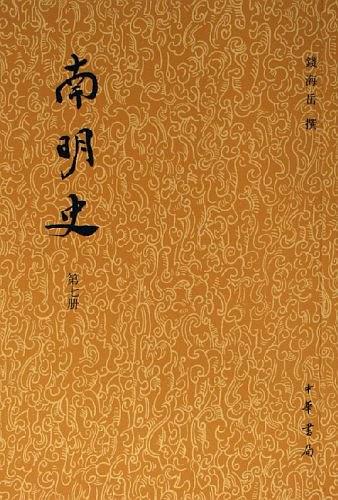 錢海岳 撰
南明史
第七册
中華書局